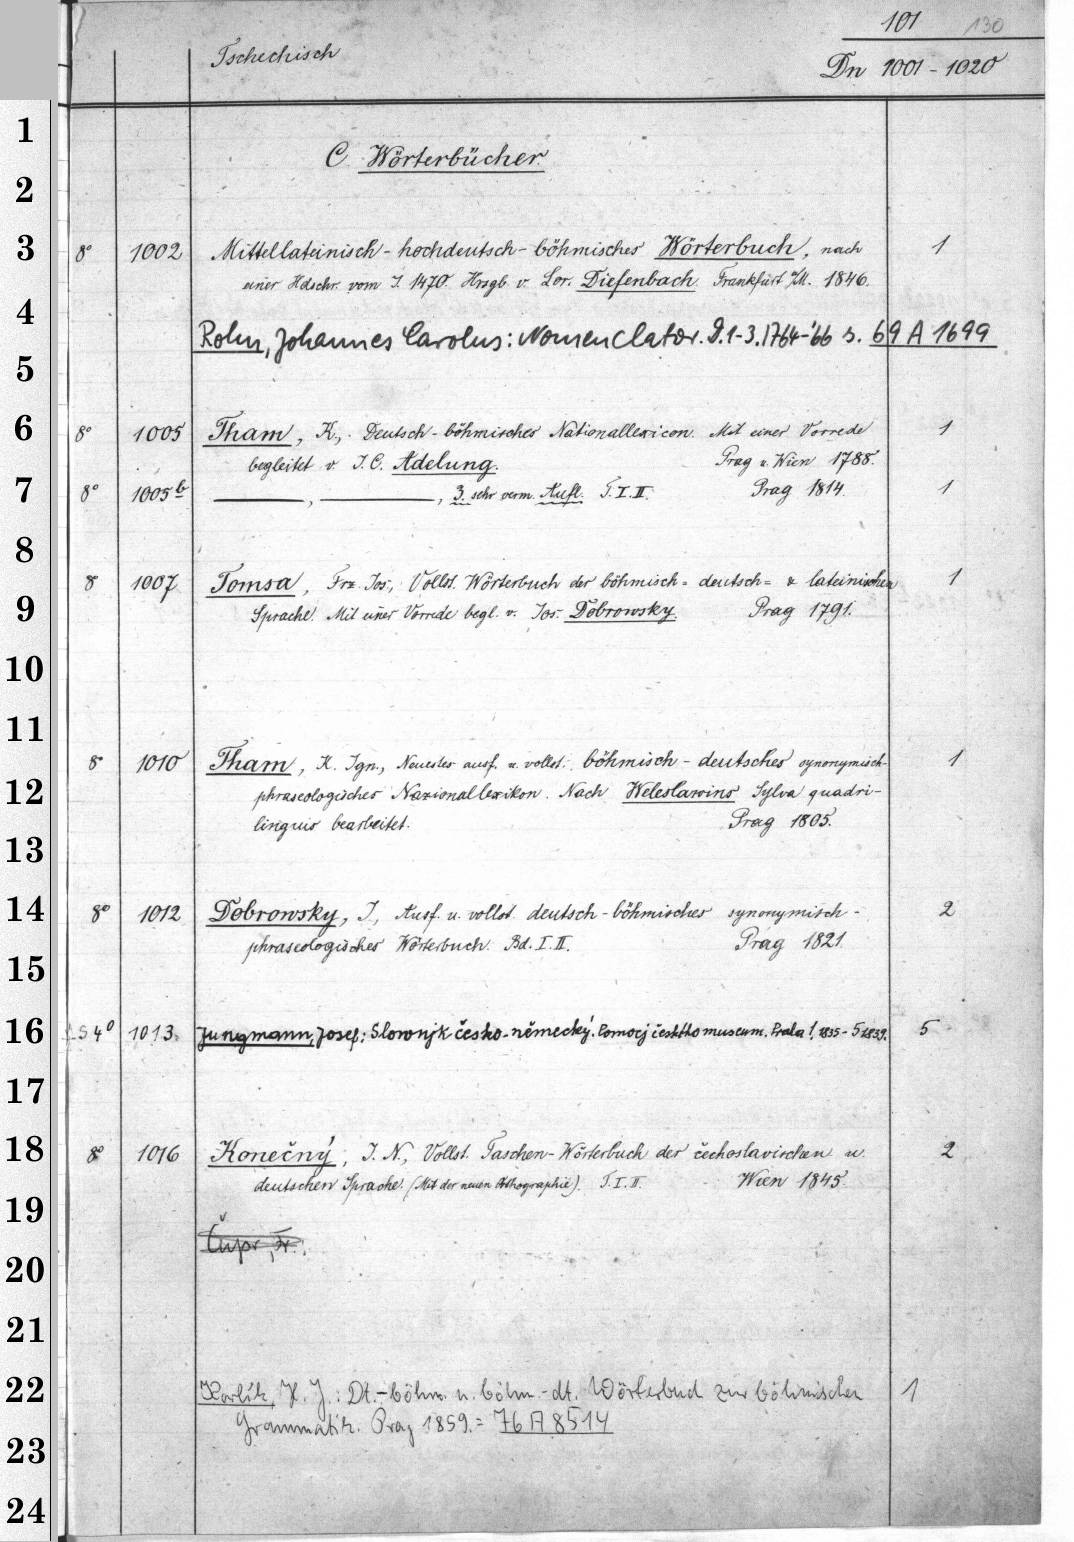 101 130
Tschechisch
Dn 1001 - 1020
1
C Wörterbücher.
2
3 8° 1002 Mittellateinisch - hochdeutsch - böhmisches Wörterbuch, nach 1
einer Hdschr. vom J. 1470. Hrsgb. v. Lor. Diefenbach. Frankfurt a/M. 1846.
4 Rohn, Johannes Carolus: Nomenclator. D. 1-3. 1764-'66 s. 69 A 1699
5
6 8° 1005 Tham, K., Deutsch - böhmisches Nationallexicon. Mit einer Vorrede 1
begleitet v. J. C. Adelung. Prag u. Wien 1788.
7 8° 1005 b ———, ———, 3. sehr verm. Aufl. T. I. II. Prag 1814. 1
8
8 1007 Tomsa, Frz. Jos., Vollst. Wörterbuch der böhmisch= deutsch= & lateinischen 1
9 Sprache. Mit einer Vorrede begl. v. Jos. Dobrowsky. Prag 1791.
10
11
8 1010 Tham, K. Ign., Neuestes ausf. u. vollst. böhmisch - deutsches synonymisch- 1
12 phraseologisches Nazionallexikon. Nach Weleslawins Sylva quadri-
linguis bearbeitet. Prag 1805.
13
14 8° 1012 Dobrowsky, J., Ausf. u. vollst. deutsch - böhmisches synonymisch - 2
phraseologisches Wörterbuch. Bd. I. II. Prag 1821.
15
16 4° 1013. Jungmann, Josef: Slownjk česko-německý. Pomocj českého museum. Praha 1, 1835 - 5 1839. 5
17
18 8° 1016 Konečný, J. N., Vollst. Taschen-Wörterbuch der čechoslavischen u. 2
deutschen Sprache. (Mit der neuen Orthographie). T. I. II. Wien 1845.
19
Čupr, Fr.
20
21
22 Karlík, H. J.: Dt.-böhm. u. böhm.-dt. Wörterbuch zur böhmischen 1
Grammatik. Prag 1859. = 76 A 8514
23
24